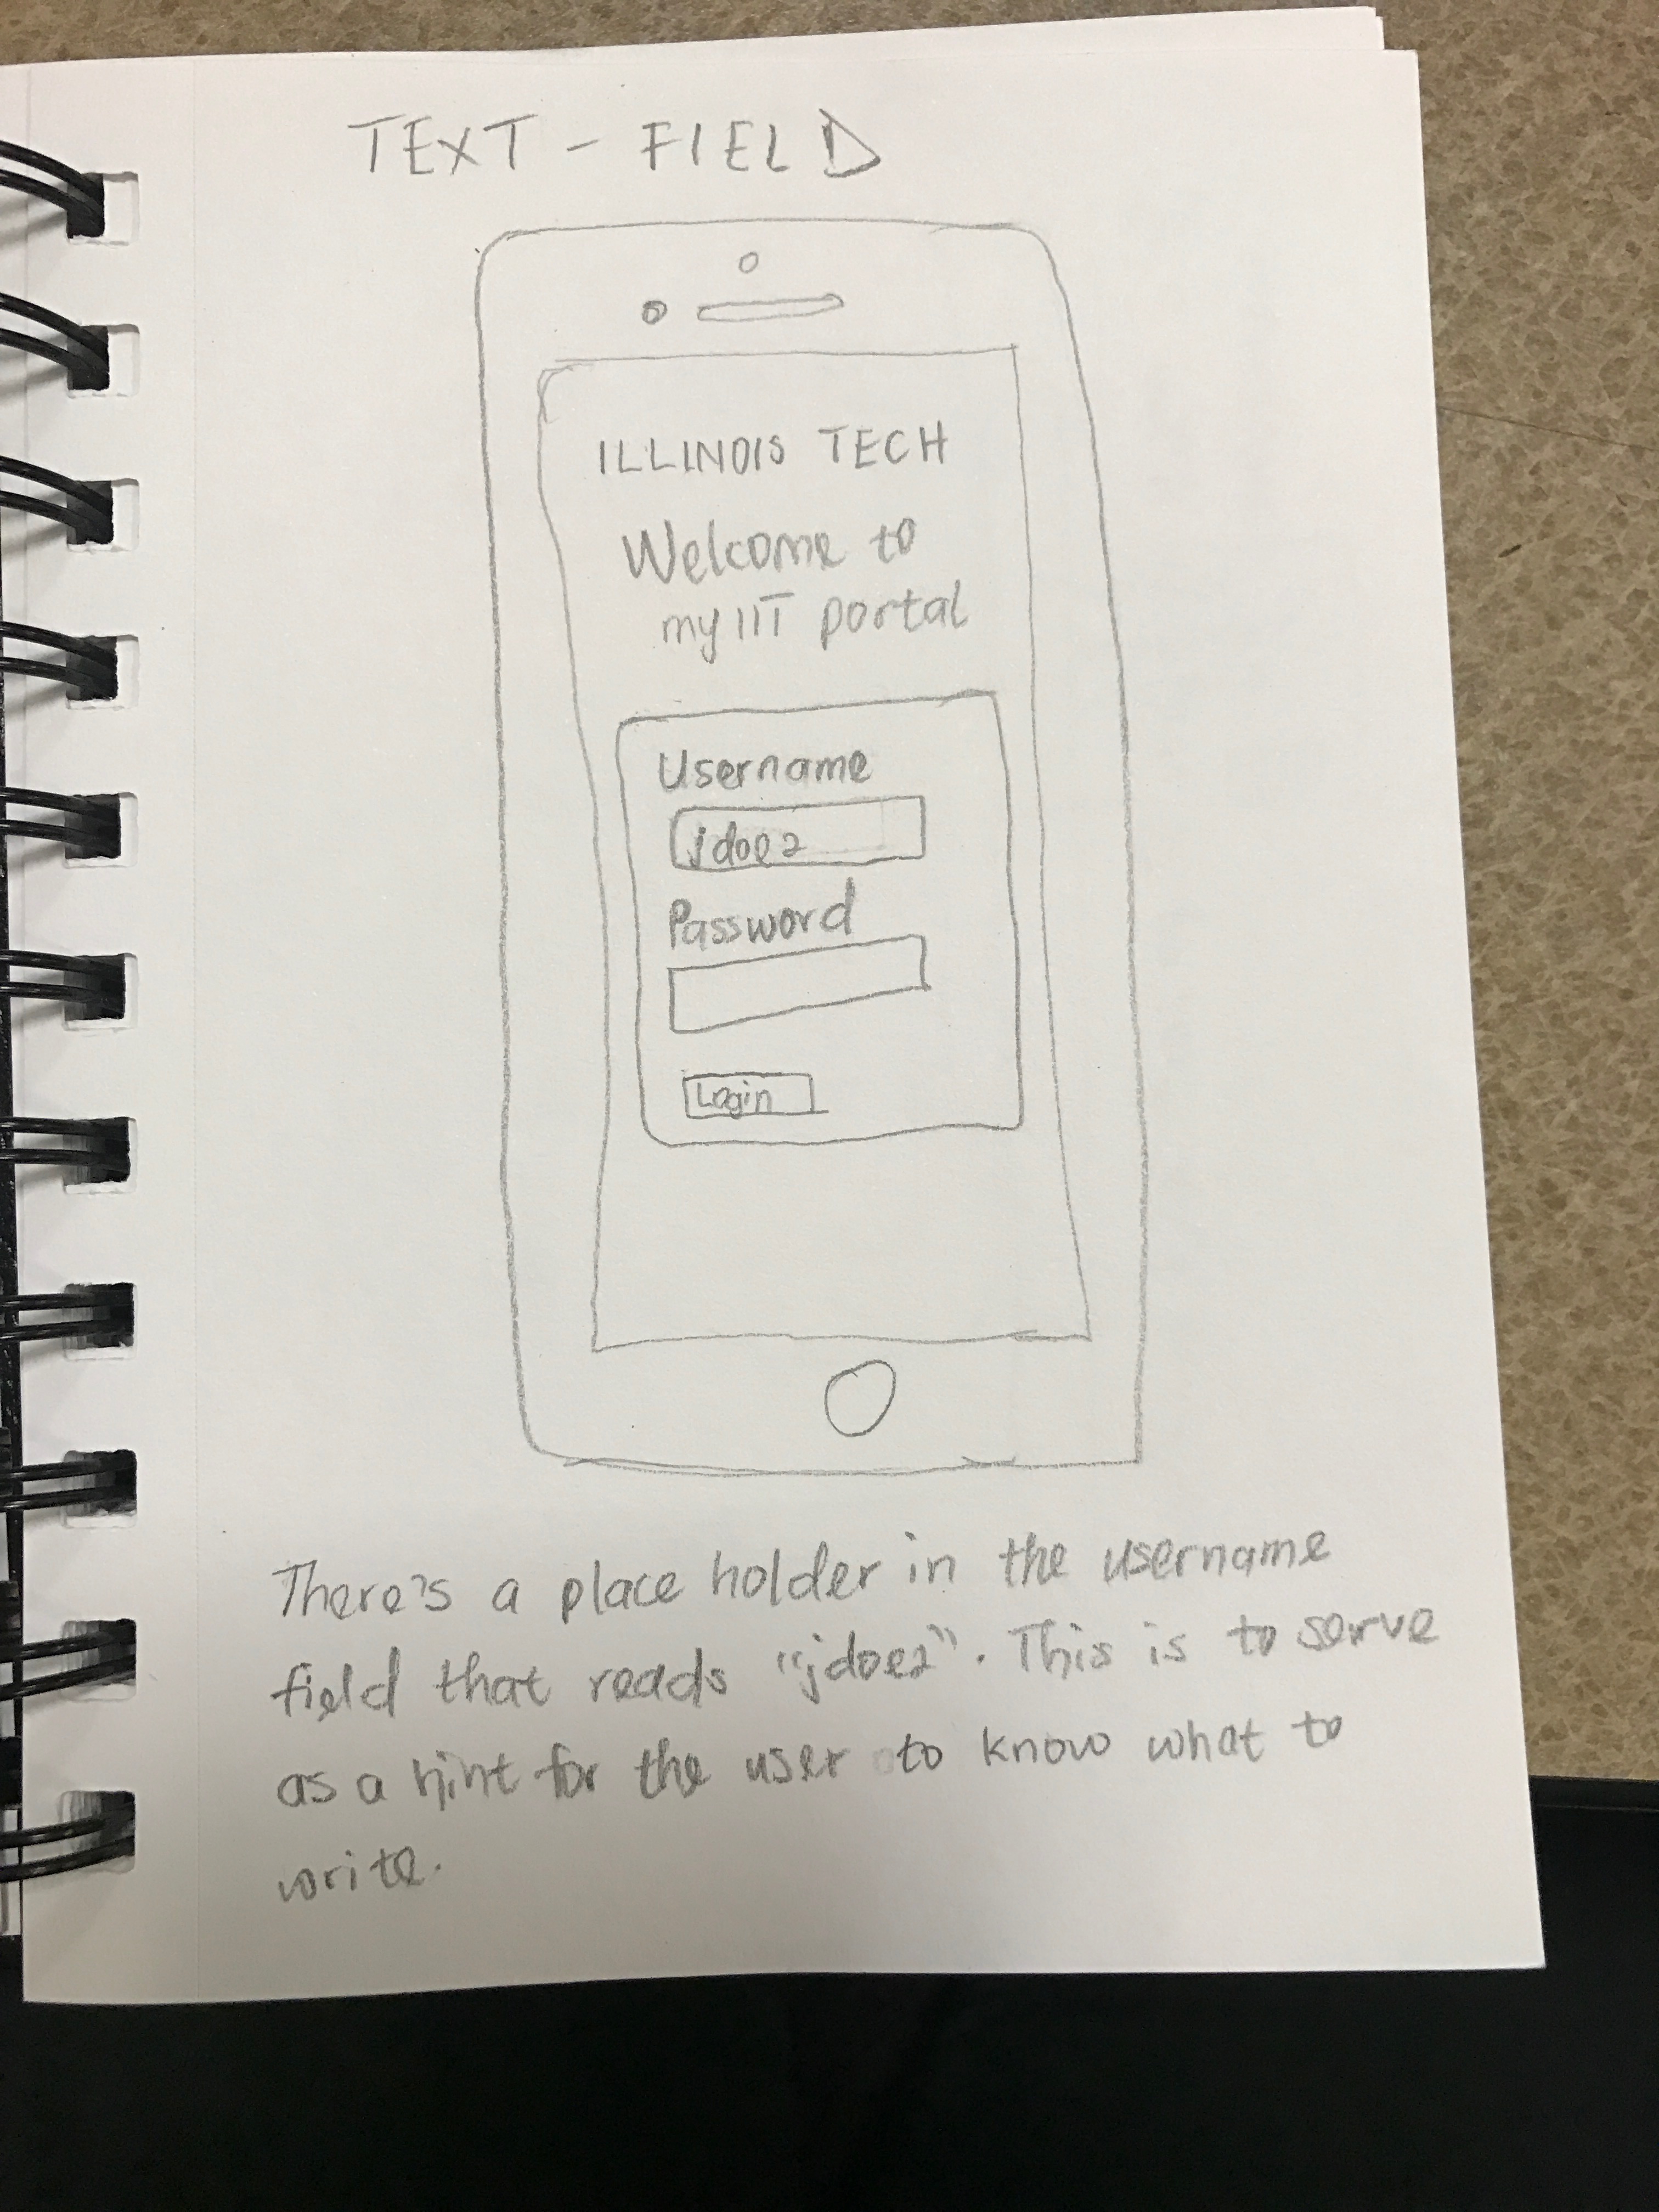 TEXT - FIELD
ILLINOIS TECH
Welcome to
my IIT portal
Username
jdoe2
Password
Login
There's a place holder in the username
field that reads "jdoe2". This is to serve
as a hint for the user to know what to
write.